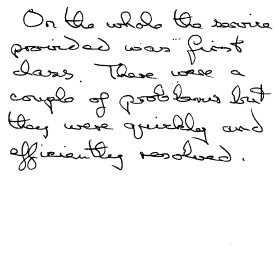 On the whole the service
provided was first
class. There were a
couple of problems but
they were quickly and
efficiently resolved.